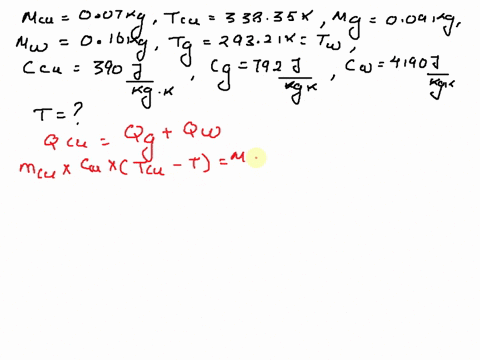 Mcu = 0.07kg, Tcu = 338.35K, Mg = 0.091kg,
Mw = 0.161kg, Tg = 293.21K = Tw,
Ccu = 390 J/kg.K, Cg = 792 J/kgK, Cw = 4190 J/kgK
T = ?
Qcu = Qg + Qw
mcu x Ccu x (Tcu - T) = M